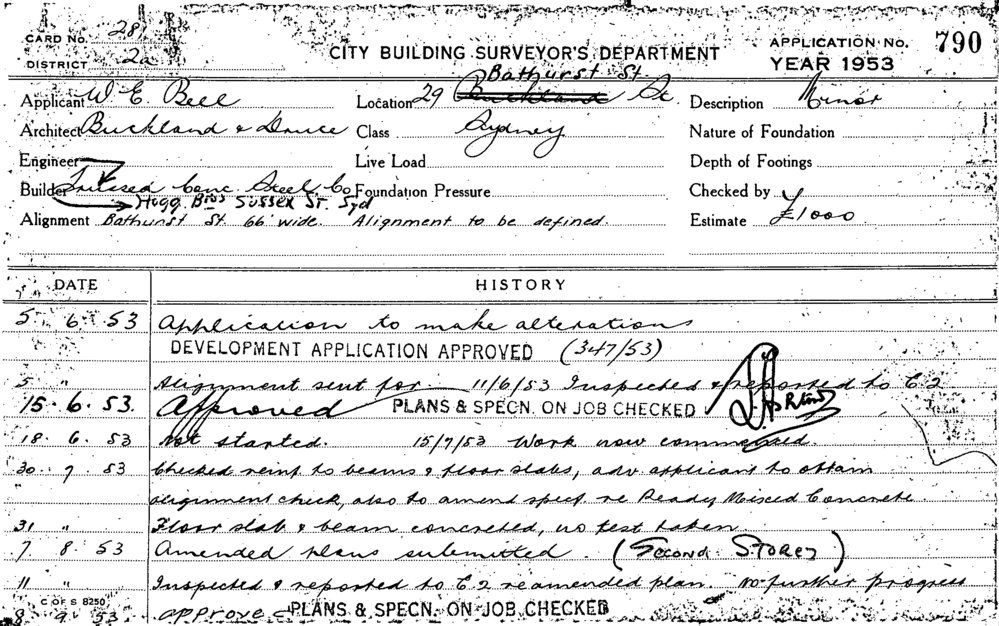 CARD NO. 28
DISTRICT 2a
CITY BUILDING SURVEYOR'S DEPARTMENT
APPLICATION NO. 790
YEAR 1953
Applicant W E Bell
Location 29 Bathurst St. Buckland St.
Description Minor
Architect Buckland & Druce
Class Sydney
Nature of Foundation
Engineer
Live Load
Depth of Footings
Builder Conc. Steel Co
Foundation Pressure
Checked by
Hogg Bros Sussex St. Syd
Alignment Bathurst St. 66' wide. Alignment to be defined.
Estimate £1000
DATE HISTORY
5. 6. 53 Application to make alterations
DEVELOPMENT APPLICATION APPROVED (347/53)
5 " Alignment sent for 11/6/53 Inspected & reported to C.2
15. 6. 53. Approved PLANS & SPECN. ON JOB CHECKED
18. 6. 53 Not started. 15/7/53 Work now commenced.
30 7 53 Checked reinf. to beams & floor slabs, adv applicant to obtain
" alignment check, also to amend specf. re Ready Mixed Concrete.
31 " Floor slab & beam concreted, no test taken
7. 8. 53 Amended plans submitted. (Second Storey)
11 " Inspected & reported to C.2 re amended plan. No further progress
C OF S 8250
8 9. 53. approved PLANS & SPECN. ON JOB CHECKED